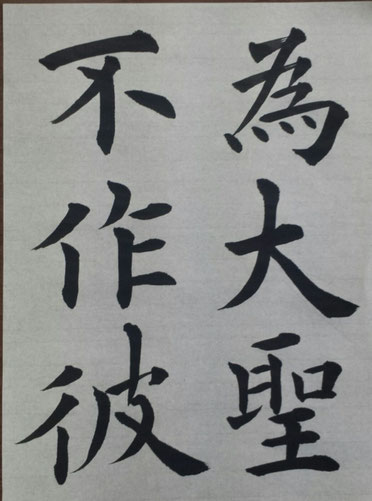 為大聖
不作彼